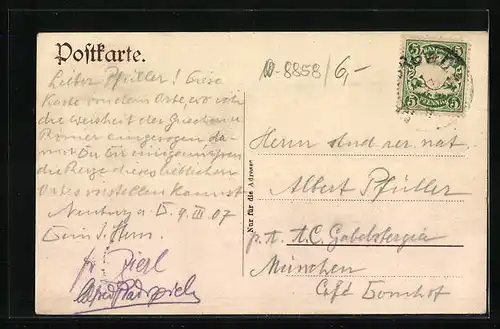 Postkarte.
Lieber Pfüller! Diese
Karte von dem Orte, wo ich
die Weisheit der Griechen u.
Römer eingesogen da-
mit Du Dir einigermassen
die Reize dieses lieblichen
Ortes vorstellen kannst
Neuburg a. D. 9. III 07
8858/6,-
5 5
BAYERN
5 PFENNIG 5
Nur für die Adresse
Herrn stud. rer. nat.
Albert Pfüller
p. A. A.C. Gabelsbergia
München
Café Domhof